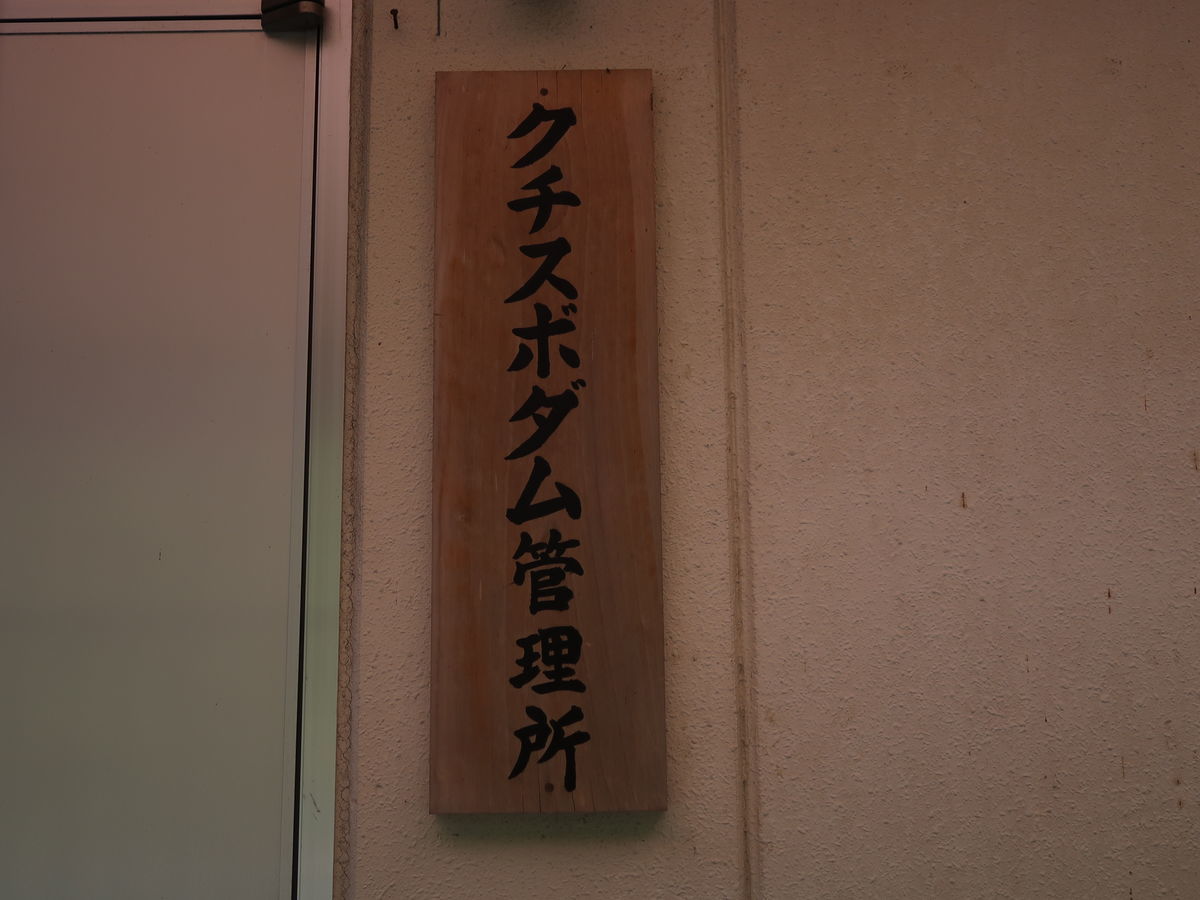 クチスボダム管理所